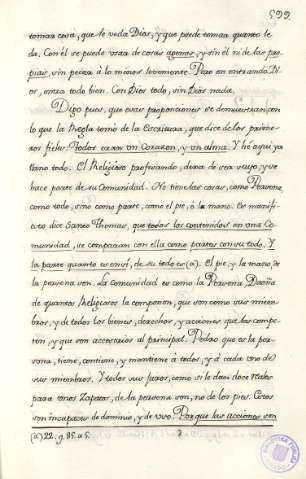 599
tomar cosa, que le veda Dios, y que puede tomar quanto le
da. Con él se puede usar de cosas agenas, y sin él ni de las pro-
pias, sin pecar á lo menos levemente. Pero en mirando Di-
os, entra todo bien. Con Dios todo, sin Dios nada.
Digo pues, que esas proporciones se demuestran con
lo que la Regla tomó de la Escritura, que dice de los prime-
ros fieles: Todos eran un Corazon, y un alma. Y he aqui ya
llano todo. El Religioso profesando, dexa de ser suyo, y se
hace parte de su Comunidad. No tiene las cosas, como Persona,
como todo, sino como parte, como el pie, ó la mano. Es manifi-
esto dice Santo Thomas, que todos los contenidos en una Co-
munidad, se comparan con ella como partes con su todo. Y
la parte quanto es en sí, de su todo es (a). El pie, y la mano, de
la persona son. La Comunidad es como la Persona Dueña
de quantos Religiosos la componen, que son como sus miem-
bros, y de todos los bienes, derechos, y acciones que les compe-
ten, y que son accesorios al principal. Pedro que es la per-
sona, tiene, contiene, y mantiene á todos, y á cada uno de
sus miembros. Y todos sus juros, como si le dan doce reales
para unos Zapatos, de la persona son, no de los pies. Estos
son incapaces de dominio, y de uso. Porque las acciones son
(a) 22. q. 95. a 5.